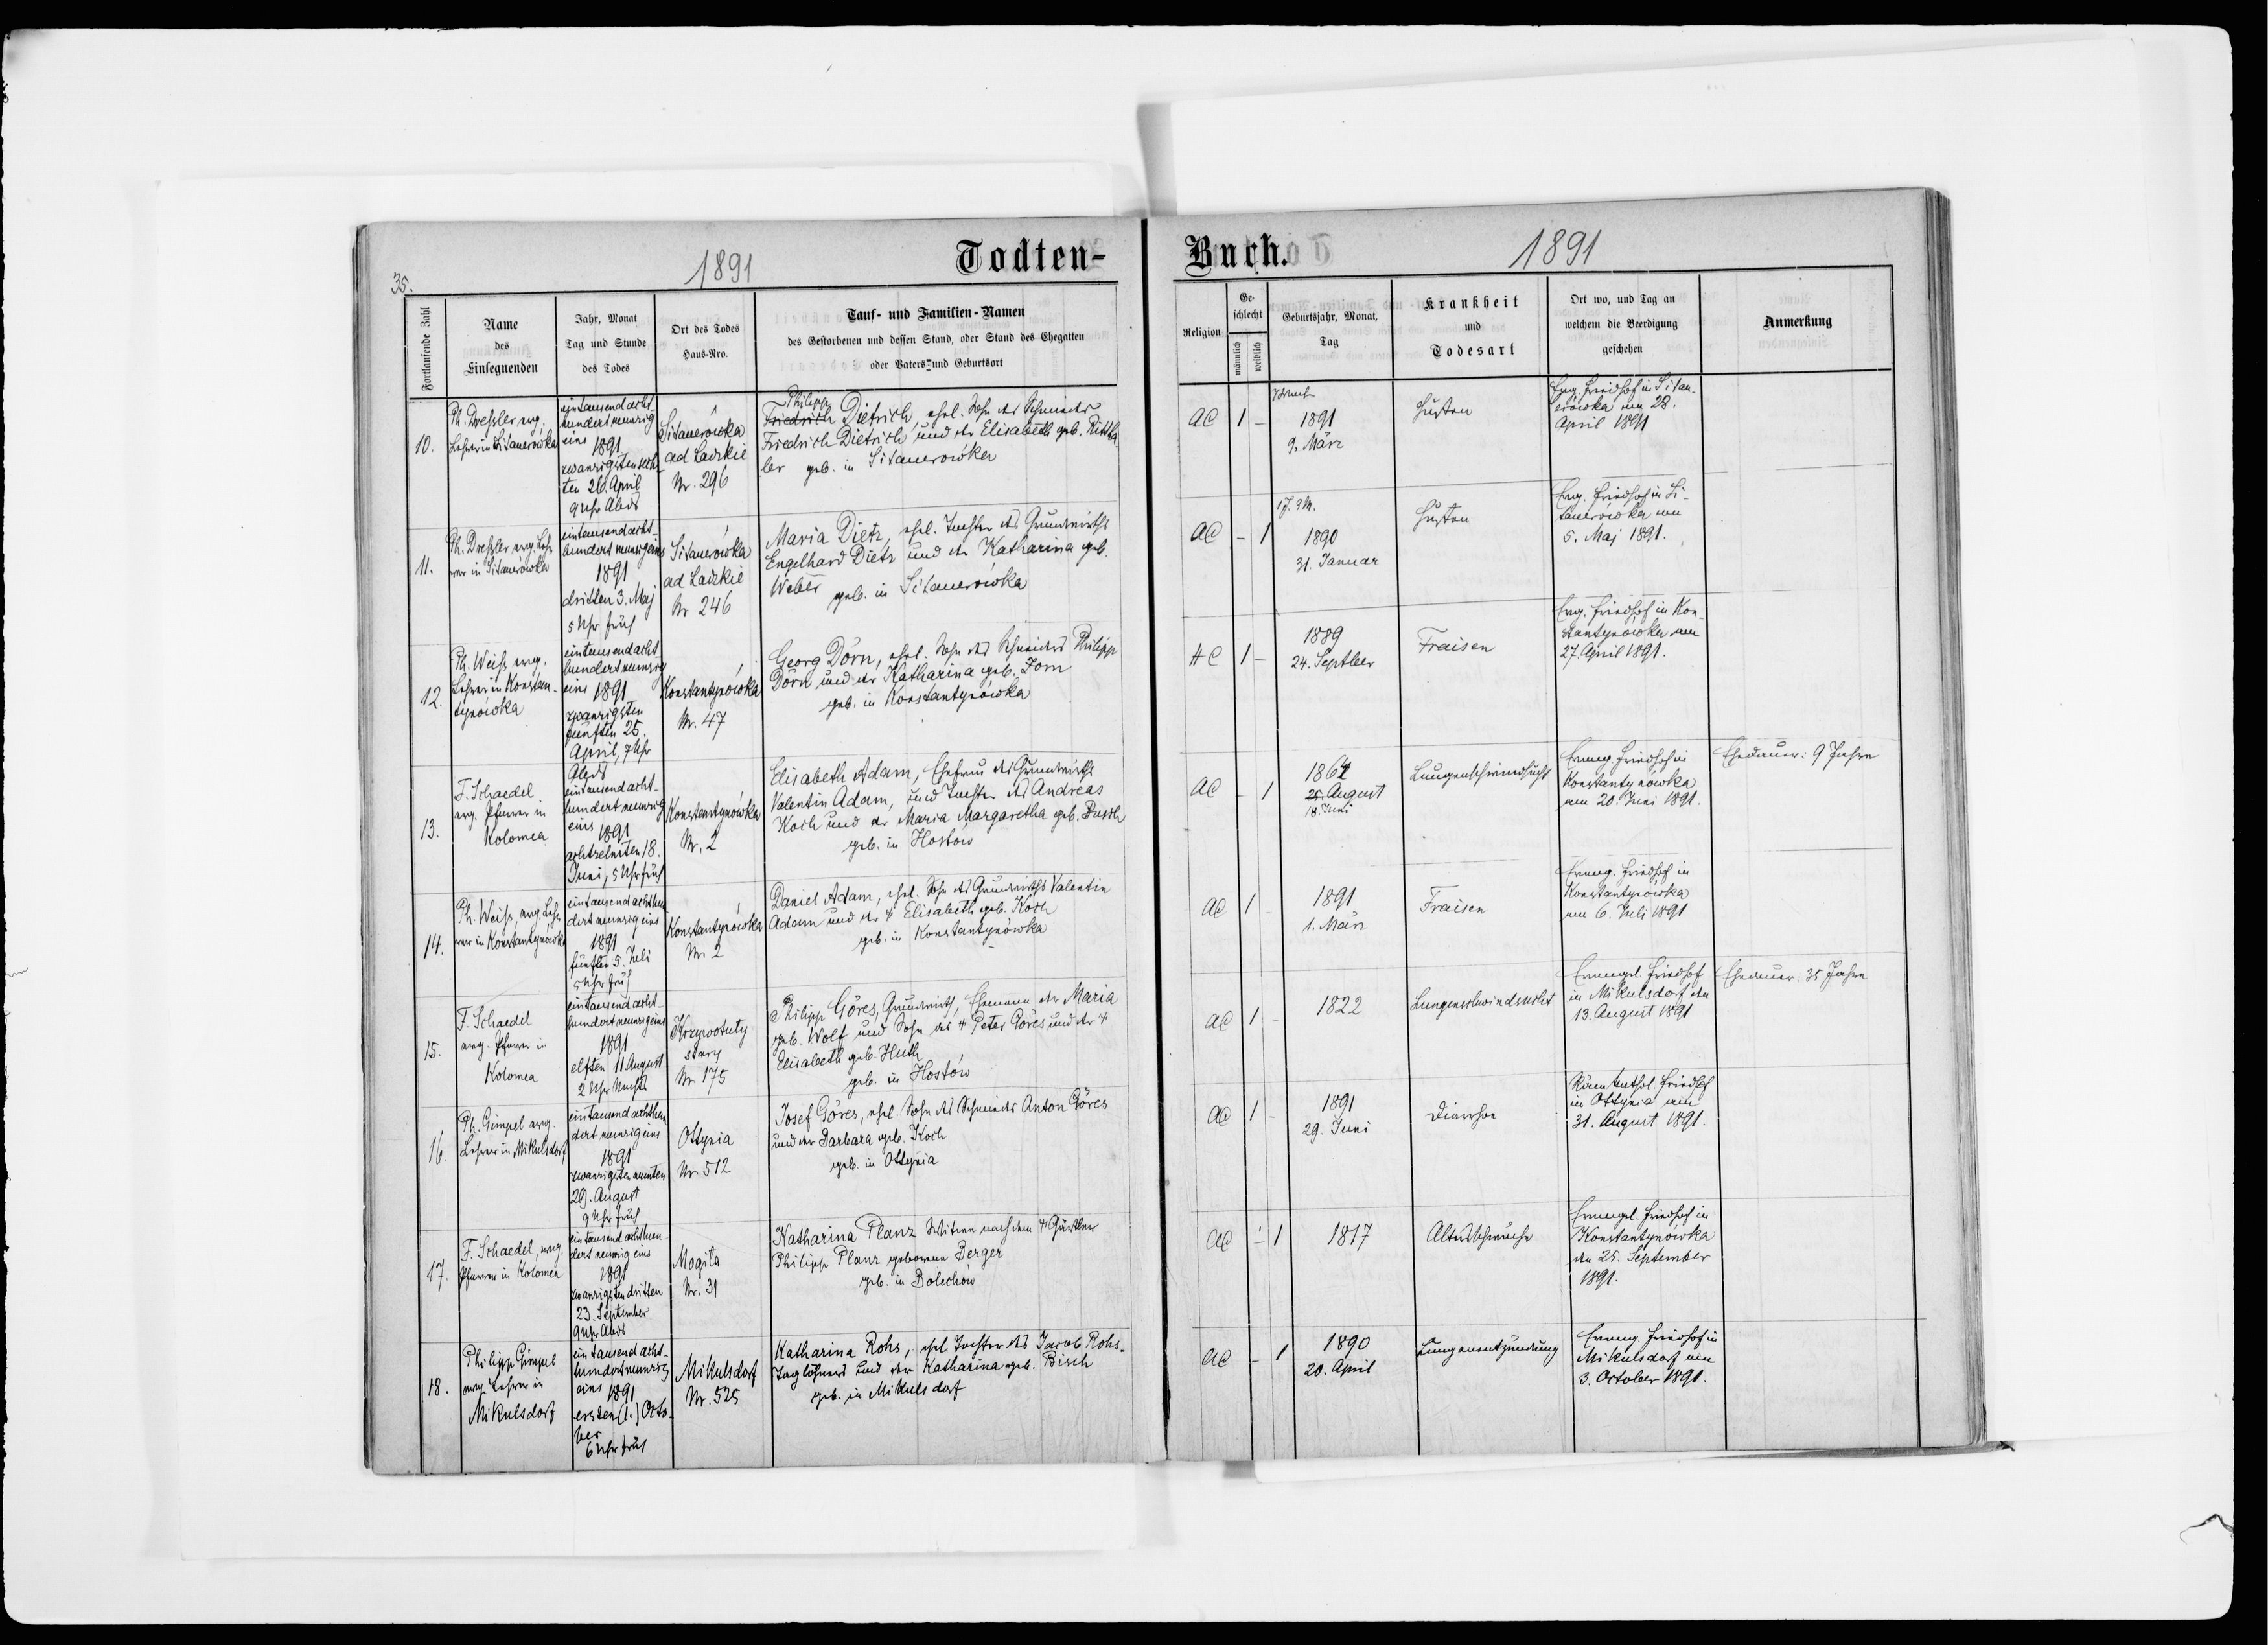 35.
1891
Todten-
Fortlaufende Zahl
Name
des
Einsegnenden
Jahr, Monat
Tag und Stunde
des Todes
Ort des Todes
Haus-Nro.
Tauf- und Familien-Namen
des Gestorbenen und dessen Stand, oder Stand des Ehegatten
oder Vaters- und Geburtsort
10.
Ph. Dreßler evg.
Lehrer in Sitauerówka
eintausend acht-
hundert neunzig
eins
1891
zwanzigsten sechs-
ten 26. April
9 Uhr Abds
Sitauerówka
ad Ladzkie
Nr. 296
Philipp
Friedrich Dietrich, ehel. Sohn des Schmiedes
Friedrich Dietrich, und der Elisabeth geb. Rittha
ler geb. in Sitauerowka
11.
Ph. Dreßler evg. Leh-
rer in Sitauerówka
eintausend acht-
hundert neunzig eins
1891
dritten 3. Maj
5 Uhr früh
Sitauerówka
ad Ladzkie
Nr 246
Maria Dietz, ehel. Tochter des Grundwirths
Engelhard Dietz und der Katharina geb.
Weber
geb. in Sitauerówka
12.
Ph. Weiß evg.
Lehrer in Konstan-
tynówka
eintausend acht
hundert neunzig
eins 1891
zwanzigsten
fünften 25.
April, 7 Uhr
Abds
Konstantynówka
Nr. 47
Georg Dörn, ehel. Sohn des Schneiders Philipp
Dörn und der Katharina geb. Zorn
geb. in Konstantynówka
13.
F. Schaedel
evg. Pfarrer in
Kolomea
eintausend acht-
hundert neunzig
eins
1891
achtzehnten 18.
Juni, 5 Uhr früh
Konstantynówka
Nr. 2
Elisabeth Adam, Ehefrau des Grundwirths
Valentin Adam, und Tochter des Andreas
Koch und der Maria Margaretha geb. Busch
geb. in Hostów
14.
Ph. Weiß, evg. Leh-
rer in Konstantynówka
eintausend achthun
dert neunzig eins
1891
fünften 5. Juli
5 Uhr früh
Konstantynówka
Nr 2
Daniel Adam, ehel. Sohn des Grundwirths Valentin
Adam und der † Elisabeth geb. Koch
geb. in Konstantynówka
15.
F. Schaedel
evg. Pfarrer in
Kolomea
eintausend acht-
hundert neunzig eins
1891
elften 11 August
2 Uhr Nachts
Krzywotuły
stary
Nr. 175
Philipp Göres, Grundwirth, Ehemann der Maria
geb. Wolf und Sohn des † Peter Göres und der †
Elisabeth geb. Huth
geb. in Hostów
16.
Ph. Gimpel evg.
Lehrer in Mikulsdorf
eintausend achthun
dert neunzig eins
1891
zwanzigsten neunten
29. August
9 Uhr früh
Ottynia
Nr. 512
Josef Göres, ehel. Sohn des Schmiedes Anton Göres
und der Barbara geb. Koch
geb. in Ottynia
17.
F. Schaedel, evg.
Pfarrer in Kolomea
eintausend achthun
dert neunzig eins
1891
zwanzigsten dritten
23. September
9 Uhr Abds
Mogiła
Nr. 31
Katharina Planz Witwe nach dem †
Philipp Planz geborene Berger
geb. in Bolechów
18.
Philipp Gimpel
evg. Lehrer in
Mikulsdorf
eintausend acht-
hundert neunzig
eins 1891
ersten (1.) Octo-
ber
6 Uhr früh
Mikulsdorf
Nr. 525
Katharina Rohs, ehel Tochter des Jacob Rohs-
Taglöhners und der Katharina geb. Bisch
geb. in Mikulsdorf
Buch.
1891
Religion
Ge-
schlecht
männlich
weiblich
Geburtsjahr, Monat,
Tag
Krankheit
und
Todesart
Ort wo, und Tag an
welchem die Beerdigung
geschehen
Anmerkung
AC 1 -
1891
9. März
Husten
Evg. Friedhof in Sitau-
erówka am 28.
April 1891
AC - 1
1 J. 3 M.
1890
31. Januar
Husten
Evg. Friedhof in Si-
tauerówka am
5. Maj 1891.
HC 1 -
1889
24. Septber
Fraisen
Evg. Friedhof in Kon-
stantynówka am
27. April 1891.
AC - 1
1864
25. August
18. Juni
Lungenschwindsucht
Evang. Friedhof in
Konstantynówka
am 20. Juni 1891.
Ehedauer: 9 Jahre
AC 1 -
1891
1. März
Fraisen
Evang. Friedhof in
Konstantynówka
am 6. Juli 1891
AC 1 -
1822
Lungenschwindsucht
Evangel. Friedhof
in Mikulsdorf den
13. August 1891
Ehedauer: 35 Jahre
AC 1 -
1891
29. Juni
Diarrhoe
Röm kathol. Friedhof
in Ottynia am
31. August 1891.
AC - 1
1817
Altersschwäche
Evangel. Friedhof in
Konstantynówka
den 25. September
1891.
AC - 1
1890
20. April
Lungenentzündung
Evang. Friedhof in
Mikulsdorf am
3. October 1891.